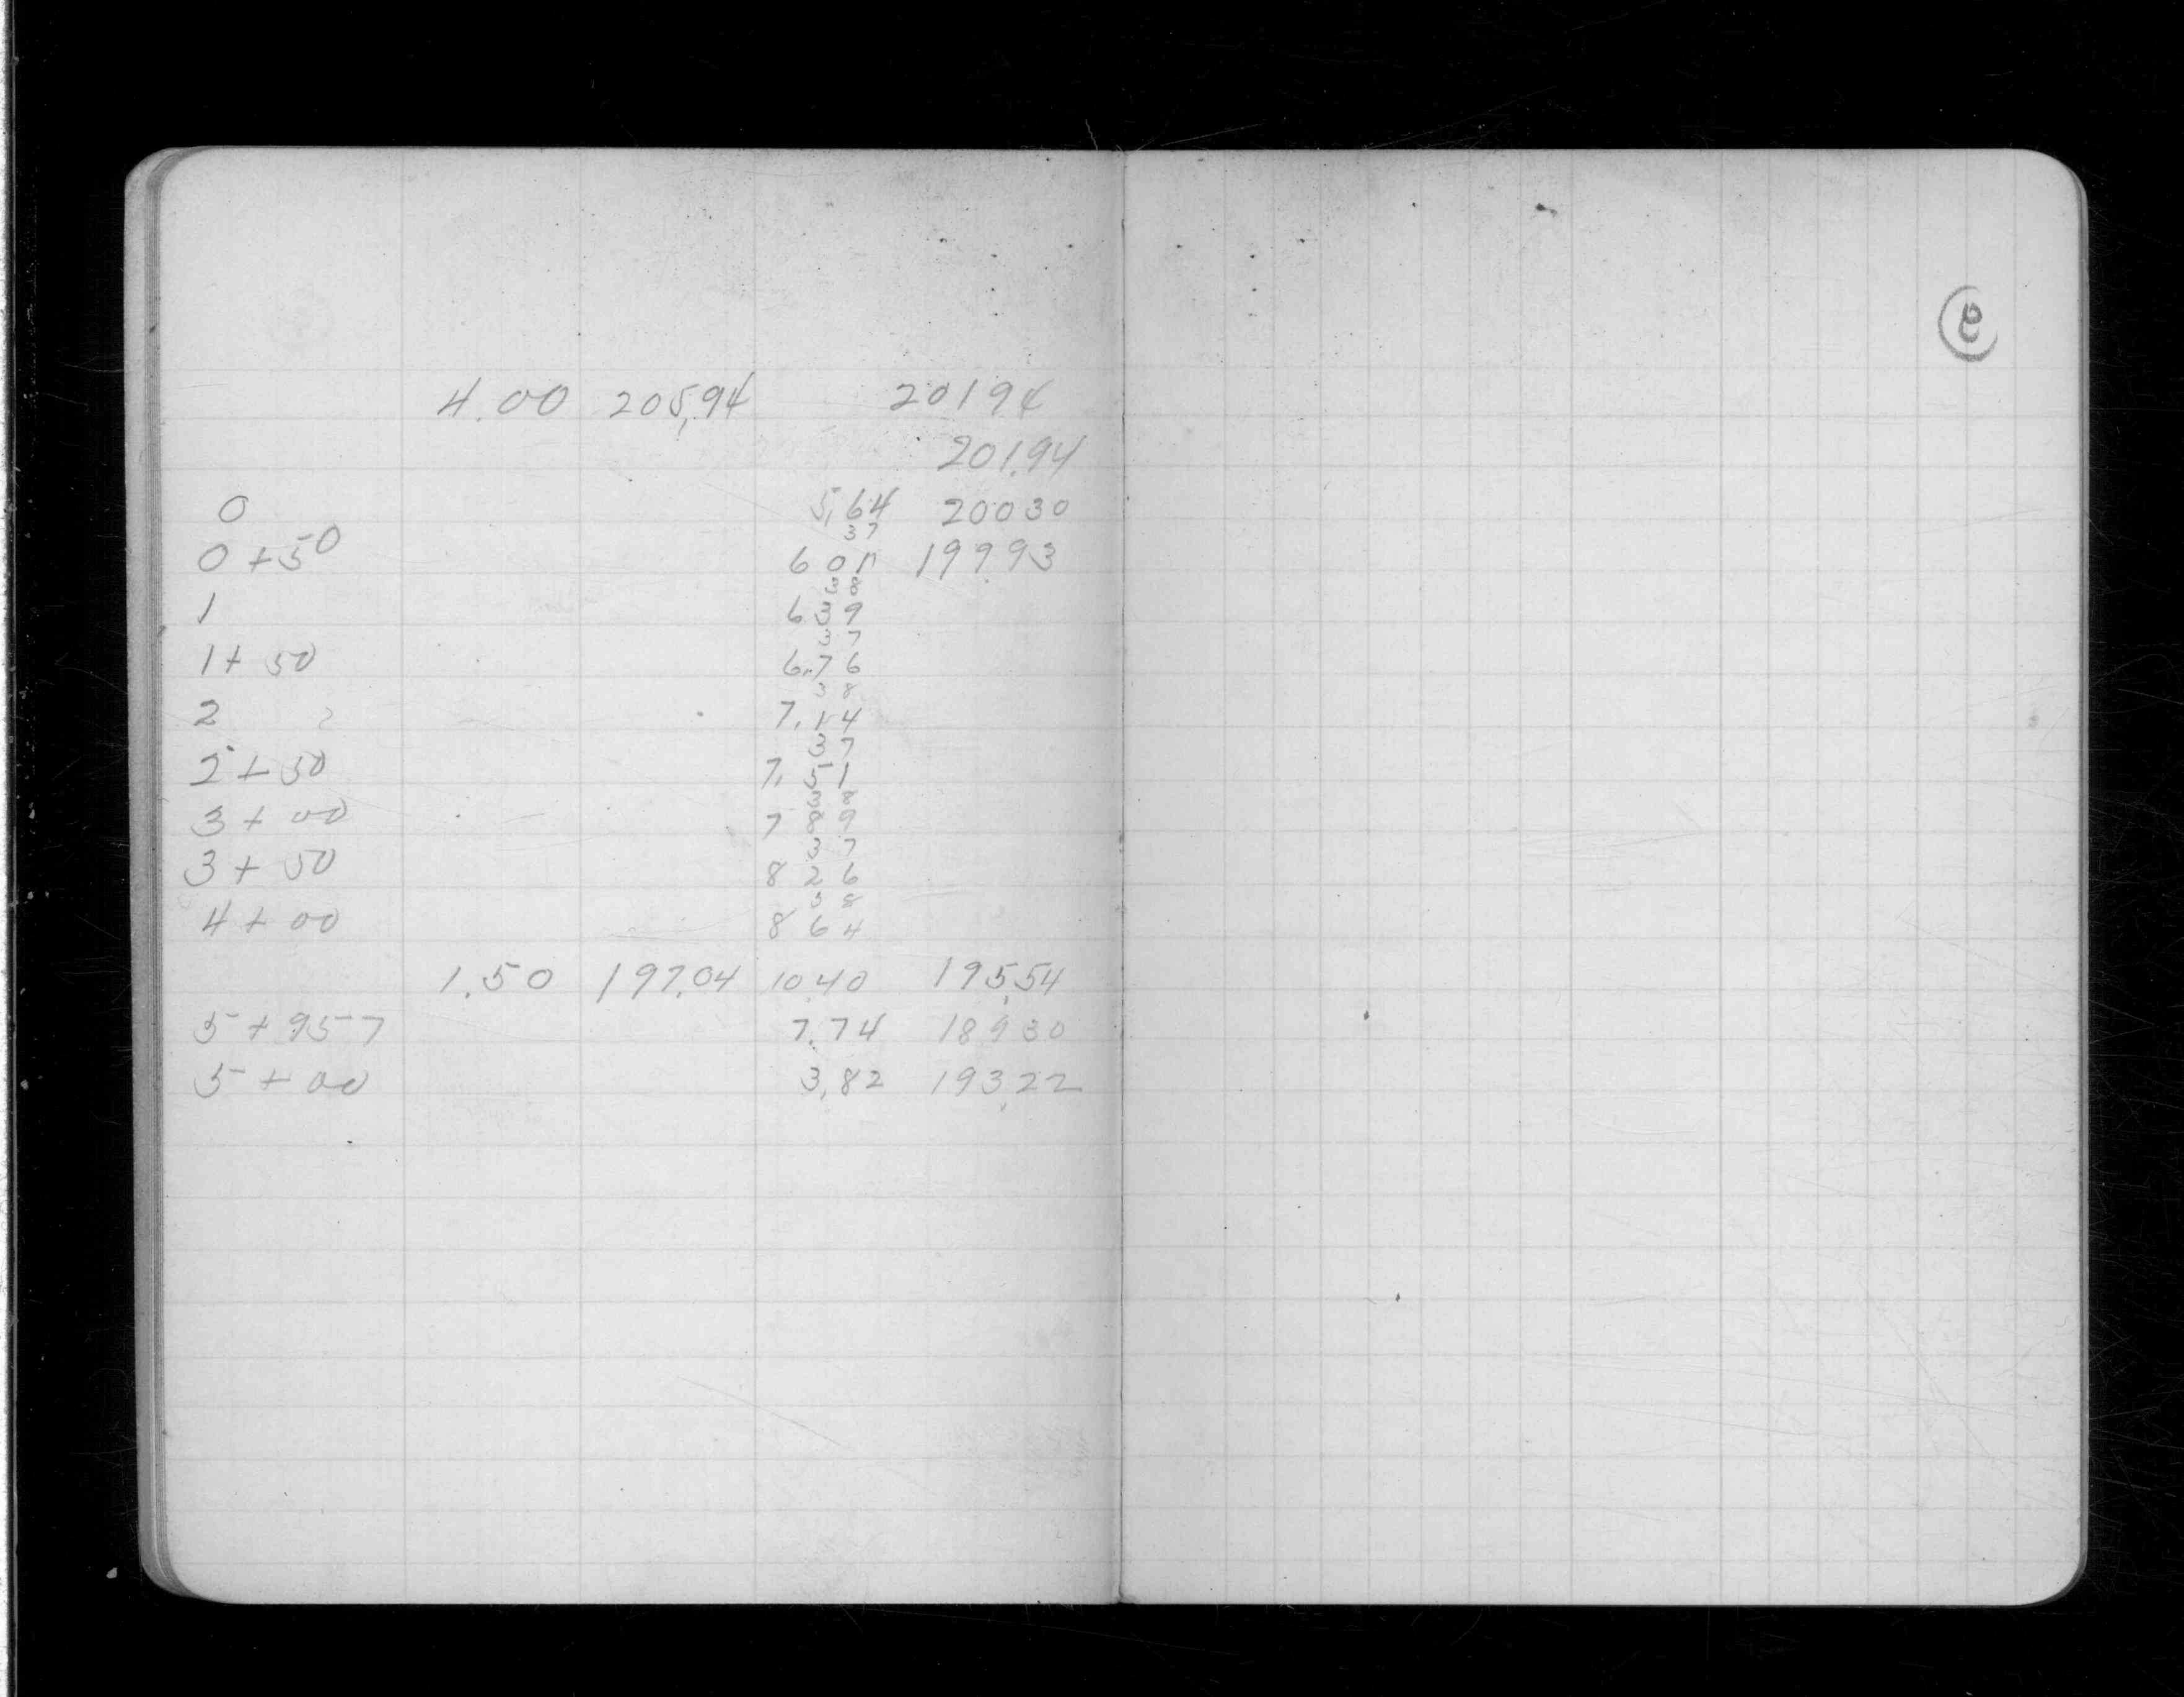 4.00 205.94 20194
201.94
0 5.64 20030
37
0+50 6 01 199.93
3 8
1 6 3 9
3 7
1+ 50 6.7 6
3 8
2 7.14
3 7
2+50 7.51
3 8
3+00 7 8 9
3 7
3+50 8 2 6
3 8
4+00 8 6 4
1.50 197.04 10.40 195.54
5+957 7.74 18930
5+00 3.82 193.22